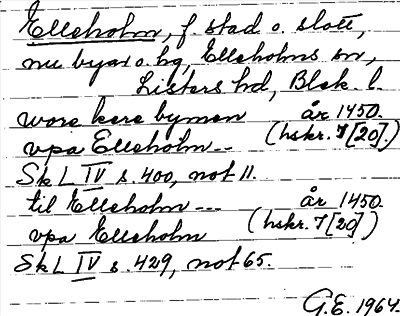 Elleholm, f. stad o. slott,
nu byar o. hg, Elleholms sn,
Listers hd, Blek. l.
wore kere bymen år 1450.
vpa Elleholm-- (hskr. 7[20].)
Sk L IV s. 400, not 11.
til Elleholm --- år 1450.
vpa Elleholm (hskr. 7[20])
Sk L IV s. 429, not 65.
G.E. 1964.